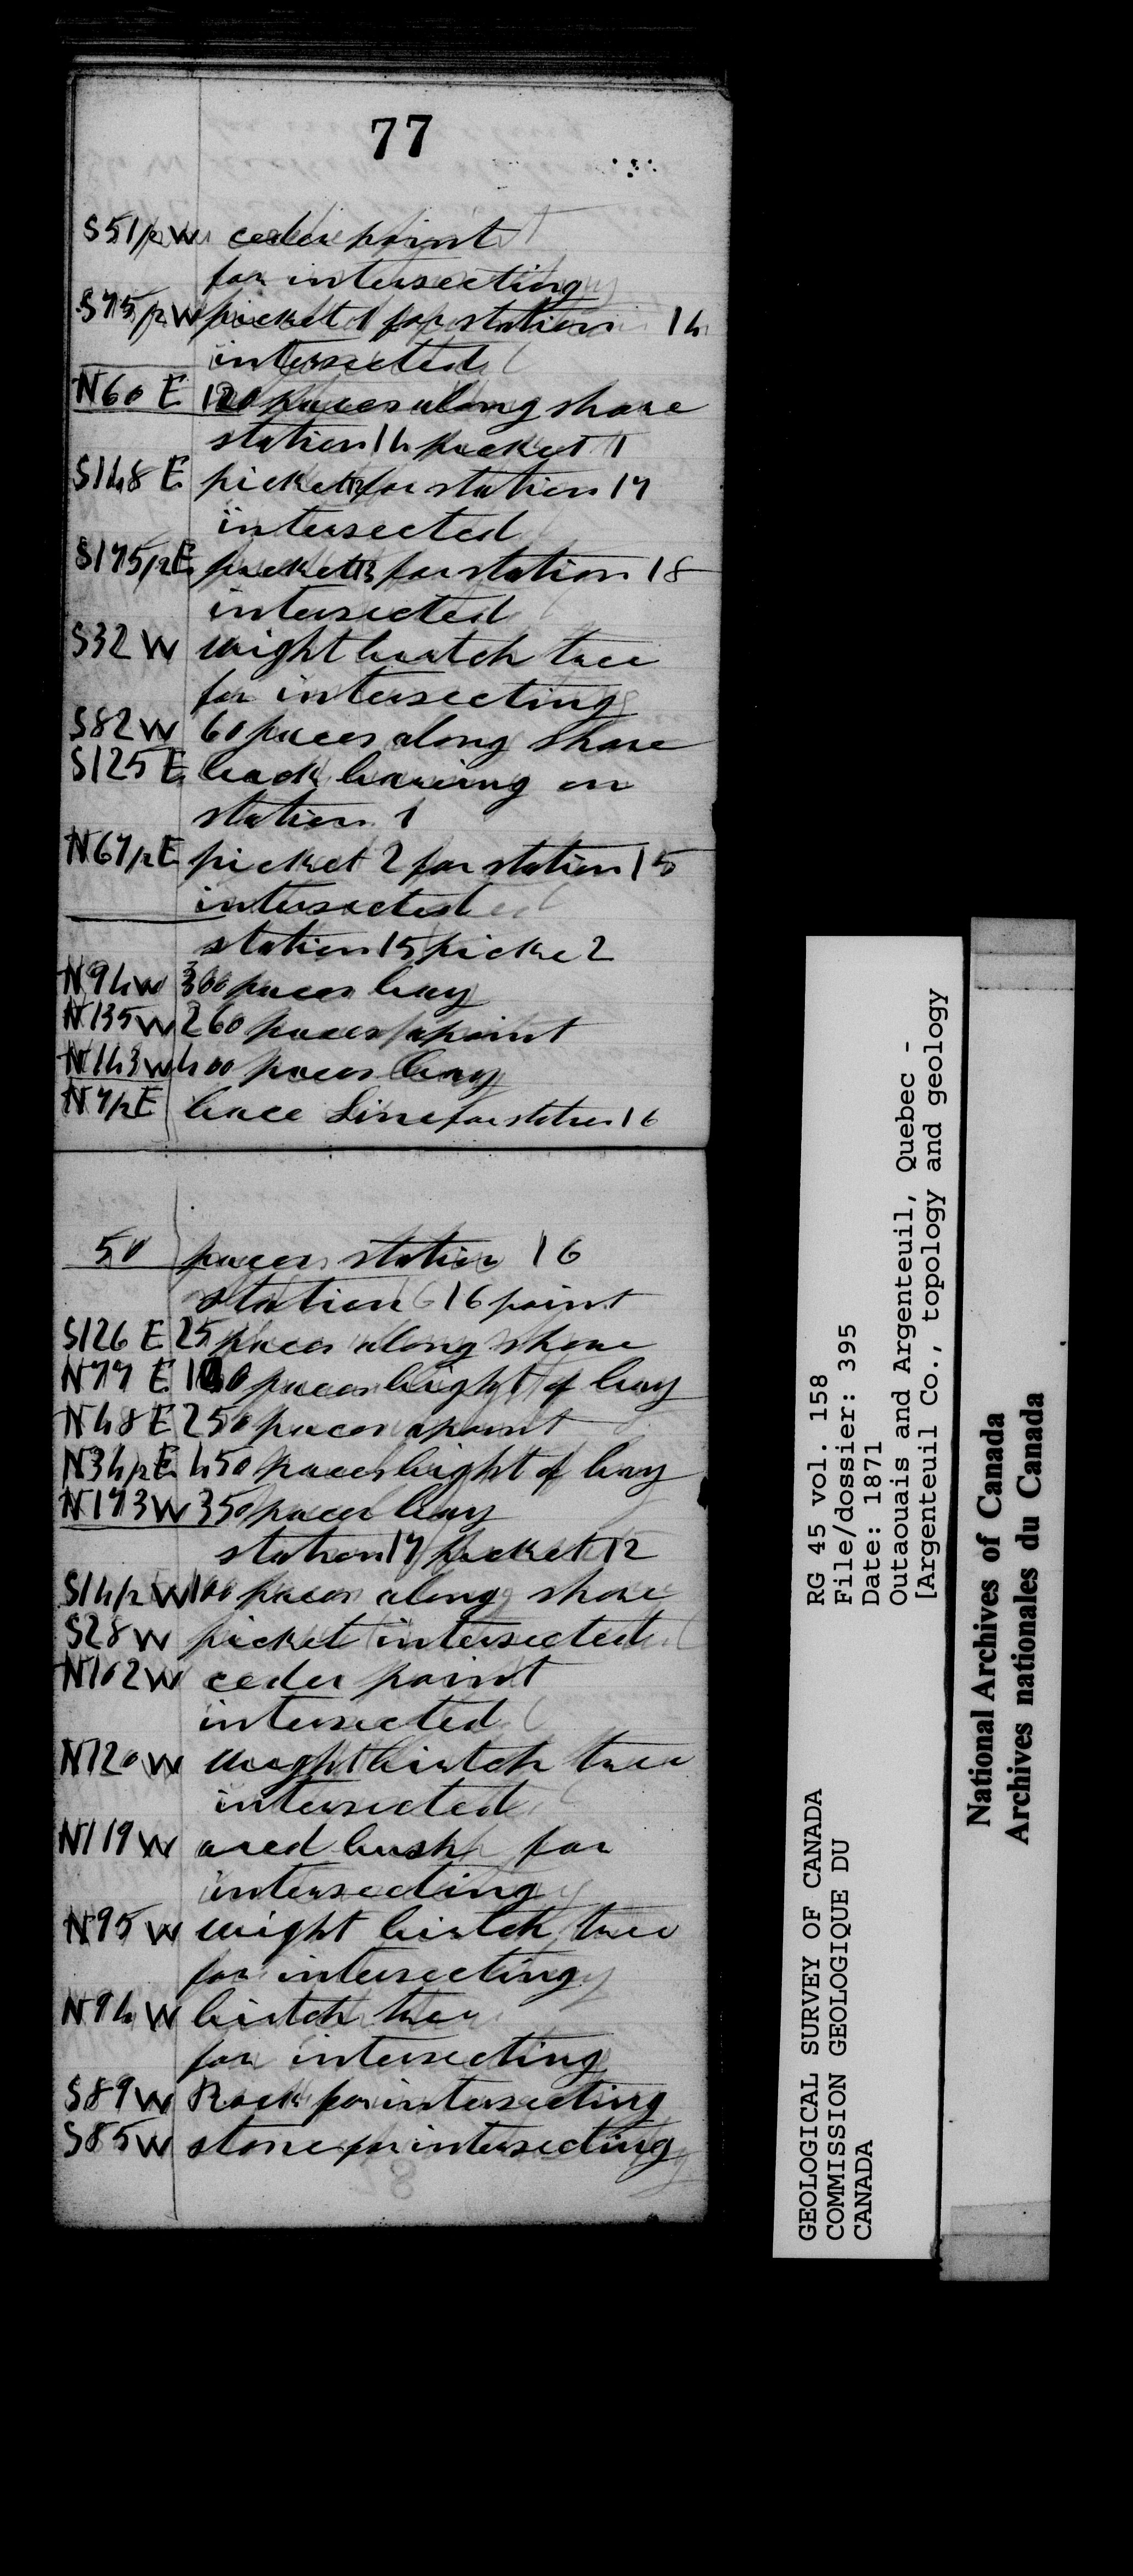 77
S51/2 W ceder point
for intersecting
S75/2 W picket 1 for station 14
intersected
N60 E 120 paces along shore
station 14 picket 1
S148 E picket 12 for station 17
intersected
S175/2 E picket 13 for station 18
intersected
S32 W wight birtch tree
for intersecting
S82 W 60 paces along shore
S125 E back bearing on
station 1
N67/2 E picket 2 for station 15
intersected
station 15 picke 2
N94 W 300 paces bay
N135 W 260 paces apoint
N143 W 400 paces bay
N7/2 E bace Line for station 16
50 paces station 16
station 16 point
S126 E 25 paces along shore
N77 E paces hight of bay
N48 E 250 paces apoint
N34/2 E 450 paces hight of bay
N173 W 350 paces bay
station 17 picket 12
S14/2 W 100 paces along shore
S28 W picket intersected
N102 W ceder point
intersected
N120 W wight birtch tree
intersected
N119 W ared bush for
intersecting
N95 W wight birtch tree
for intersecting
N94 W birtch tree
for intersecting
S89 W Rock for intersecting
S85 W stone for intersecting
GEOLOGICAL SURVEY OF CANADA
COMMISSION GEOLOGIQUE DU
CANADA
RG 45 vol. 158
File/dossier: 395
Date: 1871
Outaouais and Argenteuil, Quebec -
[Argenteuil Co., topology and geology
National Archives of Canada
Archives nationales du Canada